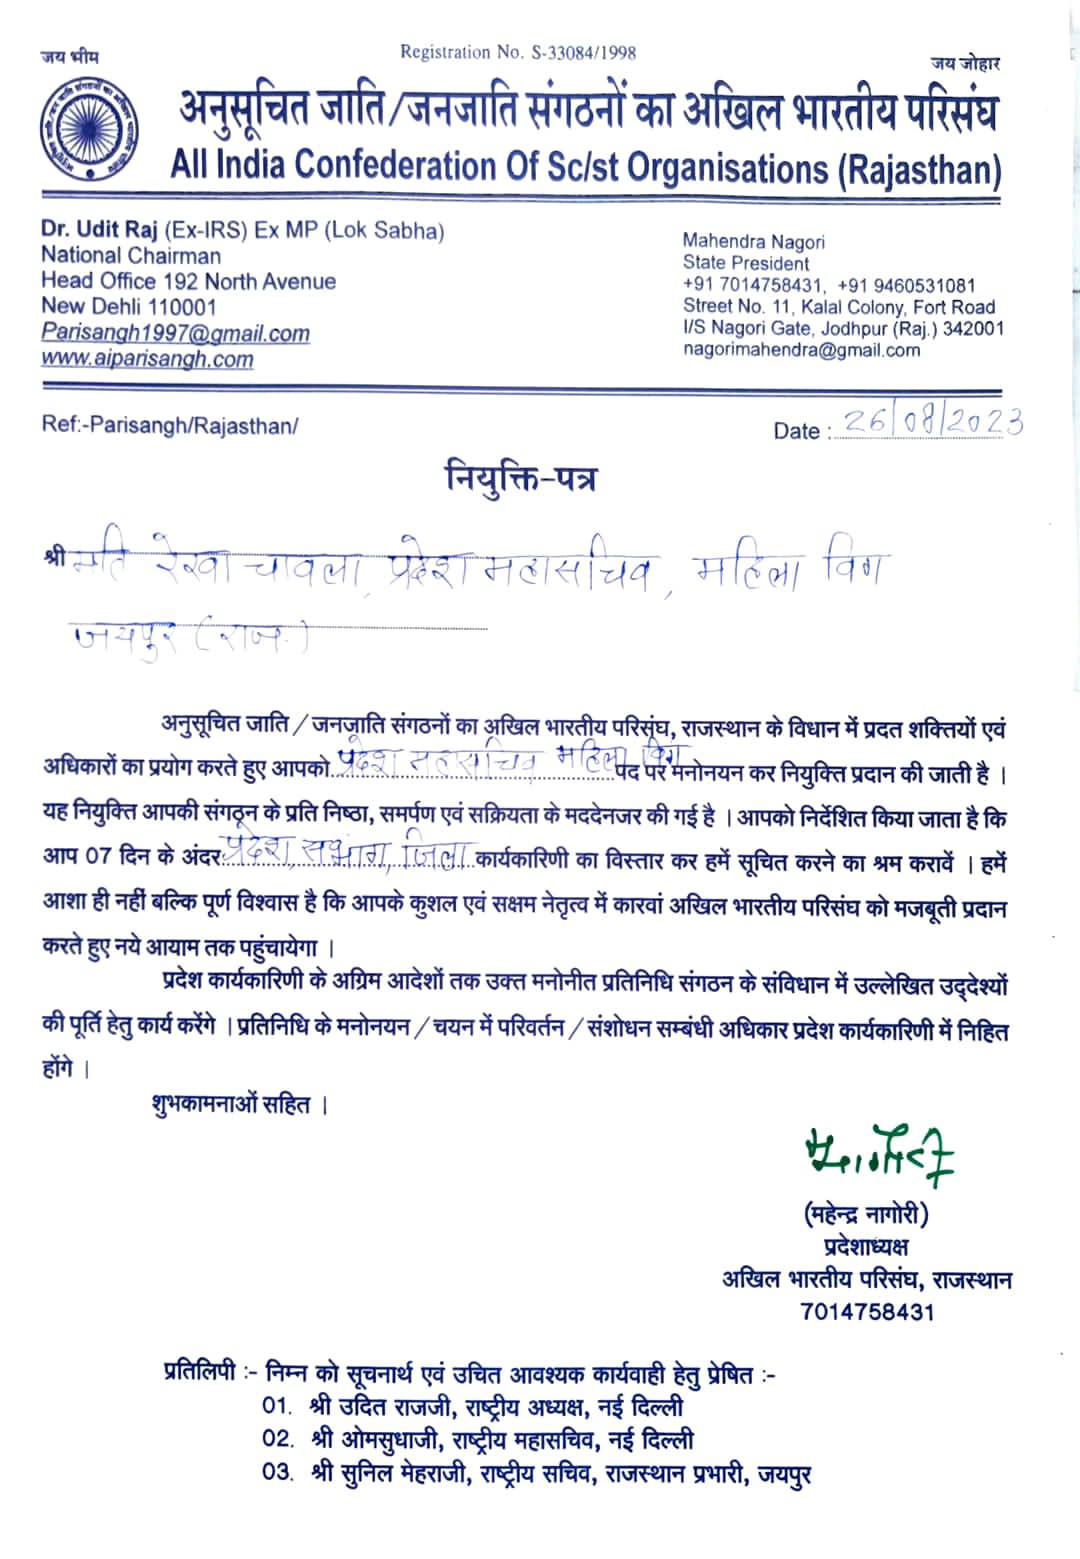 Registration No. S-33084/1998
जय भीम
जय जोहार
अनुसूचित जाति/जनजाति संगठनों का अखिल भारतीय परिसंघ
All India Confederation Of Sc/st Organisations (Rajasthan)
Dr. Udit Raj (Ex-IRS) Ex MP (Lok Sabha)
National Chairman
Head Office 192 North Avenue
New Dehli 110001
Parisangh1997@gmail.com
www.aiparisangh.com
Mahendra Nagori
State President
+91 7014758431, +91 9460531081
Street No. 11, Kalal Colony, Fort Road
I/S Nagori Gate, Jodhpur (Raj.) 342001
nagorimahendra@gmail.com
Ref:-Parisangh/Rajasthan/
Date : 26/08/2023
नियुक्ति-पत्र
श्री मति रेखा चावला, प्रदेश महासचिव, महिला विंग
जयपुर (राज.)
अनुसूचित जाति/जनजाति संगठनों का अखिल भारतीय परिसंघ, राजस्थान के विधान में प्रदत शक्तियों एवं
अधिकारों का प्रयोग करते हुए आपको प्रदेश महासचिव महिला विंग पद पर मनोनयन कर नियुक्ति प्रदान की जाती है ।
यह नियुक्ति आपकी संगठन के प्रति निष्ठा, समर्पण एवं सक्रियता के मददेनजर की गई है । आपको निर्देशित किया जाता है कि
आप 07 दिन के अंदर प्रदेश, सभांग, जिला कार्यकारिणी का विस्तार कर हमें सूचित करने का श्रम करावें । हमें
आशा ही नहीं बल्कि पूर्ण विश्वास है कि आपके कुशल एवं सक्षम नेतृत्व में कारवां अखिल भारतीय परिसंघ को मजबूती प्रदान
करते हुए नये आयाम तक पहुंचायेगा ।
प्रदेश कार्यकारिणी के अग्रिम आदेशों तक उक्त मनोनीत प्रतिनिधि संगठन के संविधान में उल्लेखित उद्देश्यों
की पूर्ति हेतु कार्य करेंगे । प्रतिनिधि के मनोनयन/चयन में परिवर्तन/संशोधन सम्बंधी अधिकार प्रदेश कार्यकारिणी में निहित
होंगे ।
शुभकामनाओं सहित ।
(महेन्द्र नागोरी)
प्रदेशाध्यक्ष
अखिल भारतीय परिसंघ, राजस्थान
7014758431
प्रतिलिपी :- निम्न को सूचनार्थ एवं उचित आवश्यक कार्यवाही हेतु प्रेषित :-
01. श्री उदित राजजी, राष्ट्रीय अध्यक्ष, नई दिल्ली
02. श्री ओमसुधाजी, राष्ट्रीय महासचिव, नई दिल्ली
03. श्री सुनिल मेहराजी, राष्ट्रीय सचिव, राजस्थान प्रभारी, जयपुर